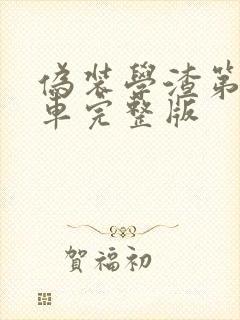 偽裝學渣第
車完整版
賀福初